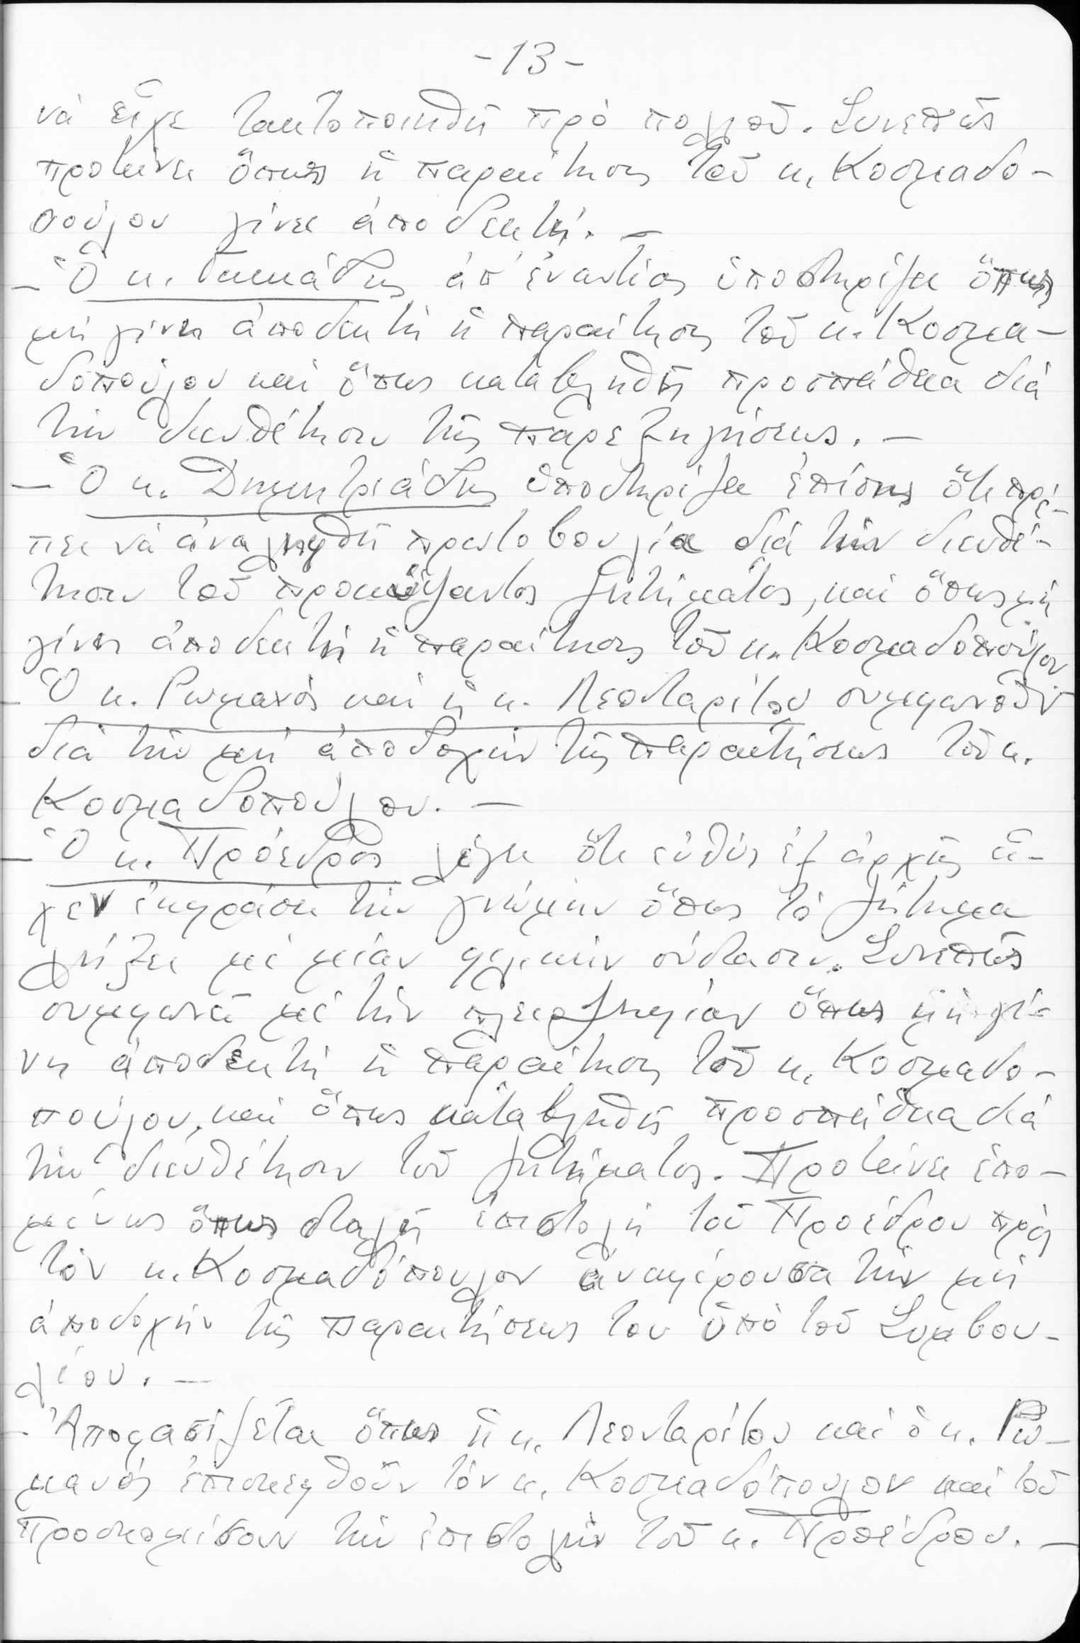 -13-
νά εἶχε τακτοποιηθῆ πρό πολλοῦ. Συνεπῶς
προτείνει ὅπως ἡ παραίτησις τοῦ κ. Κοσμαδο-
πούλου γίνει ἀποδεκτή. —
- Ὁ κ. ἀπ' ἐναντίας ὑποστηρίζει ὅπως
μή γίνει ἀποδεκτή ἡ παραίτησις τοῦ κ. Κοσμα-
δοπούλου καί ὅπως καταβληθῆ προσπάθεια διά
τήν διευθέτησιν τῆς παρεξηγήσεως. —
- Ὁ κ. Δημητριάδης ὑποστηρίζει ἐπίσης ὅτι πρέ-
πει νά ἀναληφθῆ πρωτοβουλία διά τήν διευθέ-
τησιν τοῦ προκύψαντος ζητήματος, καί ὅπως μή
γίνει ἀποδεκτή ἡ παραίτησις τοῦ κ. Κοσμαδοπούλου
- Ὁ κ. Ρωμανός καί ἡ κ. Λεονταρίτου συμφωνοῦν
διά τήν μή ἀποδοχήν τῆς παραιτήσεως τοῦ κ.
Κοσμαδοπούλου. —
- Ὁ κ. Πρόεδρος λέγει ὅτι εὐθύς ἐξ ἀρχῆς εἶ-
χεν ἐκφράσει τήν γνώμην ὅπως τό ζήτημα
λήξει μέ μίαν φιλικήν σύστασιν. Συνεπῶς
συμφωνεῖ μέ τήν πλειοψηφίαν ὅπως μή γί-
νη ἀποδεκτή ἡ παραίτησις τοῦ κ. Κοσμαδο-
πούλου, καί ὅπως καταβληθῆ προσπάθεια διά
τήν διευθέτησιν τοῦ ζητήματος. Προτείνει ἑπο-
μένως ὅπως σταλῆ ἐπιστολή τοῦ Προέδρου πρός
τόν κ. Κοσμαδόπουλον ἀναφέρουσα τήν μή
ἀποδοχήν τῆς παραιτήσεως του ὑπό τοῦ Συμβου-
λίου. —
- Ἀποφασίζεται ὅπως ἡ κ. Λεονταρίτου καί ὁ κ. Ρω-
μανός ἐπισκεφθοῦν τόν κ. Κοσμαδόπουλον καί τοῦ
προσκομίσουν τήν ἐπιστολήν τοῦ κ. Προέδρου. —